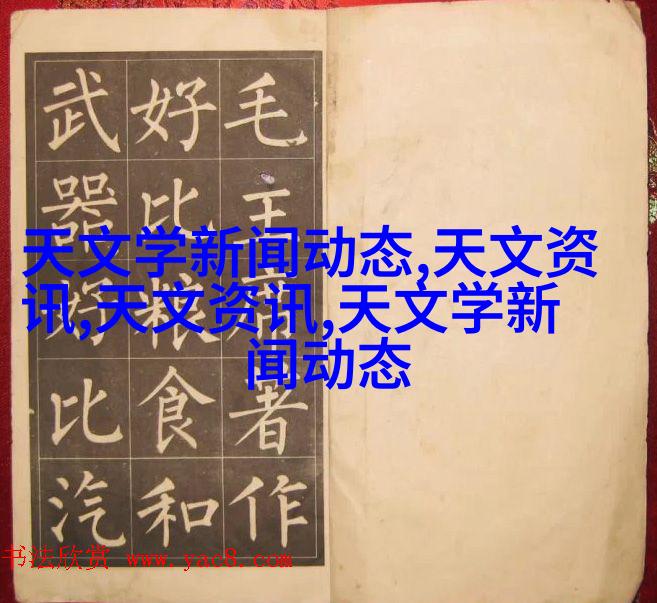 毛主席著作
好比粮食和
武器好比汽
天文学新闻动态,天文资
讯,天文资讯,天文学新
闻动态
书法欣赏 www.yac8.com